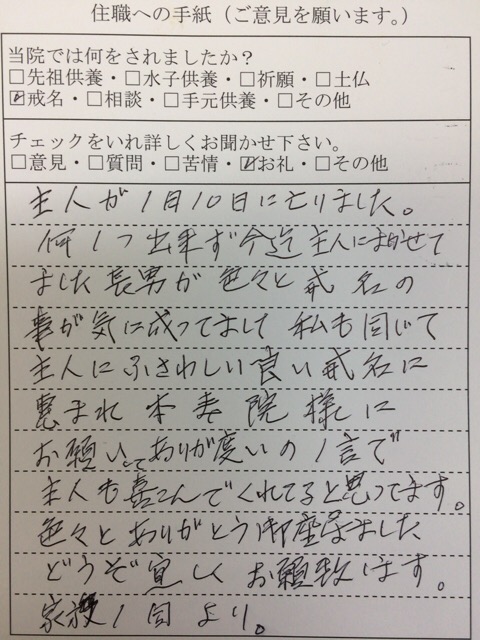 住職への手紙（ご意見を願います。）
当院では何をされましたか？
□先祖供養・□水子供養・□祈願・□土仏
☑戒名・□相談・□手元供養・□その他
チェックをいれ詳しくお聞かせ下さい。
□意見・□質問・□苦情・☑お礼・□その他
主人が1月10日に亡りました。
何1つ出来ず今迄主人にまかせて
ました長男が色々と戒名の
事が気に成ってまして私も同じて
主人にふさわしい良い戒名に
恵まれ本寿院様に
お願いしてありが度いの1言で
主人も喜こんでくれてると思ってます。
色々とありがとう御座居ました
どうぞ宜しくお願致します。
家族1同より。